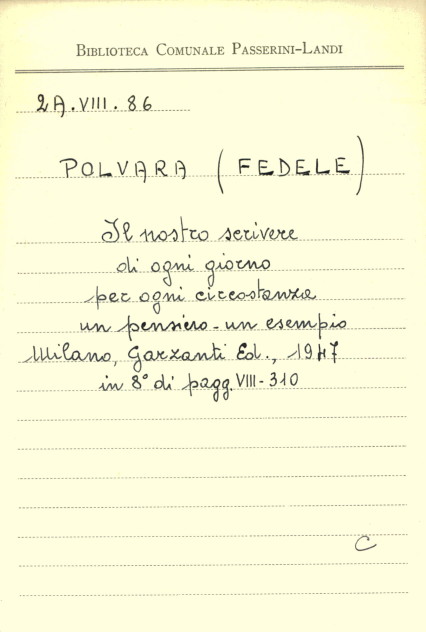 BIBLIOTECA COMUNALE PASSERINI-LANDI
2A.VIII.86
POLVARA (FEDELE)
Il nostro scrivere
di ogni giorno
per ogni circostanza
un pensiero - un esempio
Milano, Garzanti Ed., 1947
in 8° di pagg. VIII-310
C